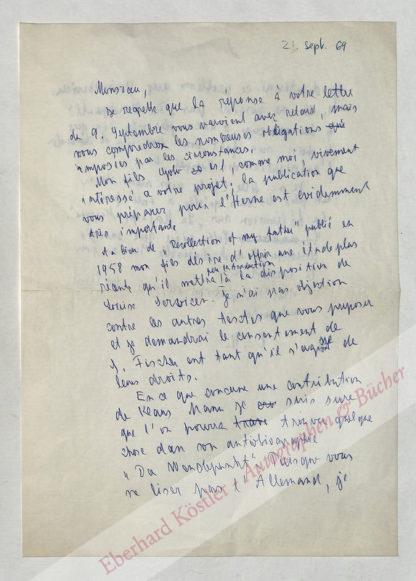 21. sept. 69
Monsieur,
Je regrette que la réponse à votre lettre
du 9. Septembre vous parvient avec retard, mais
vous comprendrez les nombreuses obligations
imposées par les circonstances.
Mon fils Golo est, comme moi, vivement
intéressé a votre projet; la publication que
vous préparez pour l'Herne est évidemment
très importante
Au lieu de "Recollection of my father" publié en
1958 mon fils désire d'offrir une étude plus
récente qu'il mettra à la disposition de
Louise Servicen. Je n'ai pas objection
contre les autres textes que vous proposez
et je demanderai le consentement de
S. Fischer en tant qu'il s'agit de
leurs droits.
En ce que concerne une contribution
de Klaus Mann je suis sure
que l'on pourra trouver quelque
chose dans son autobiographie
"Der Wendepunkt". Puisque vous
ne lisez pas l'Allemand, je
Eberhard Köstler - Autographen & Bücher